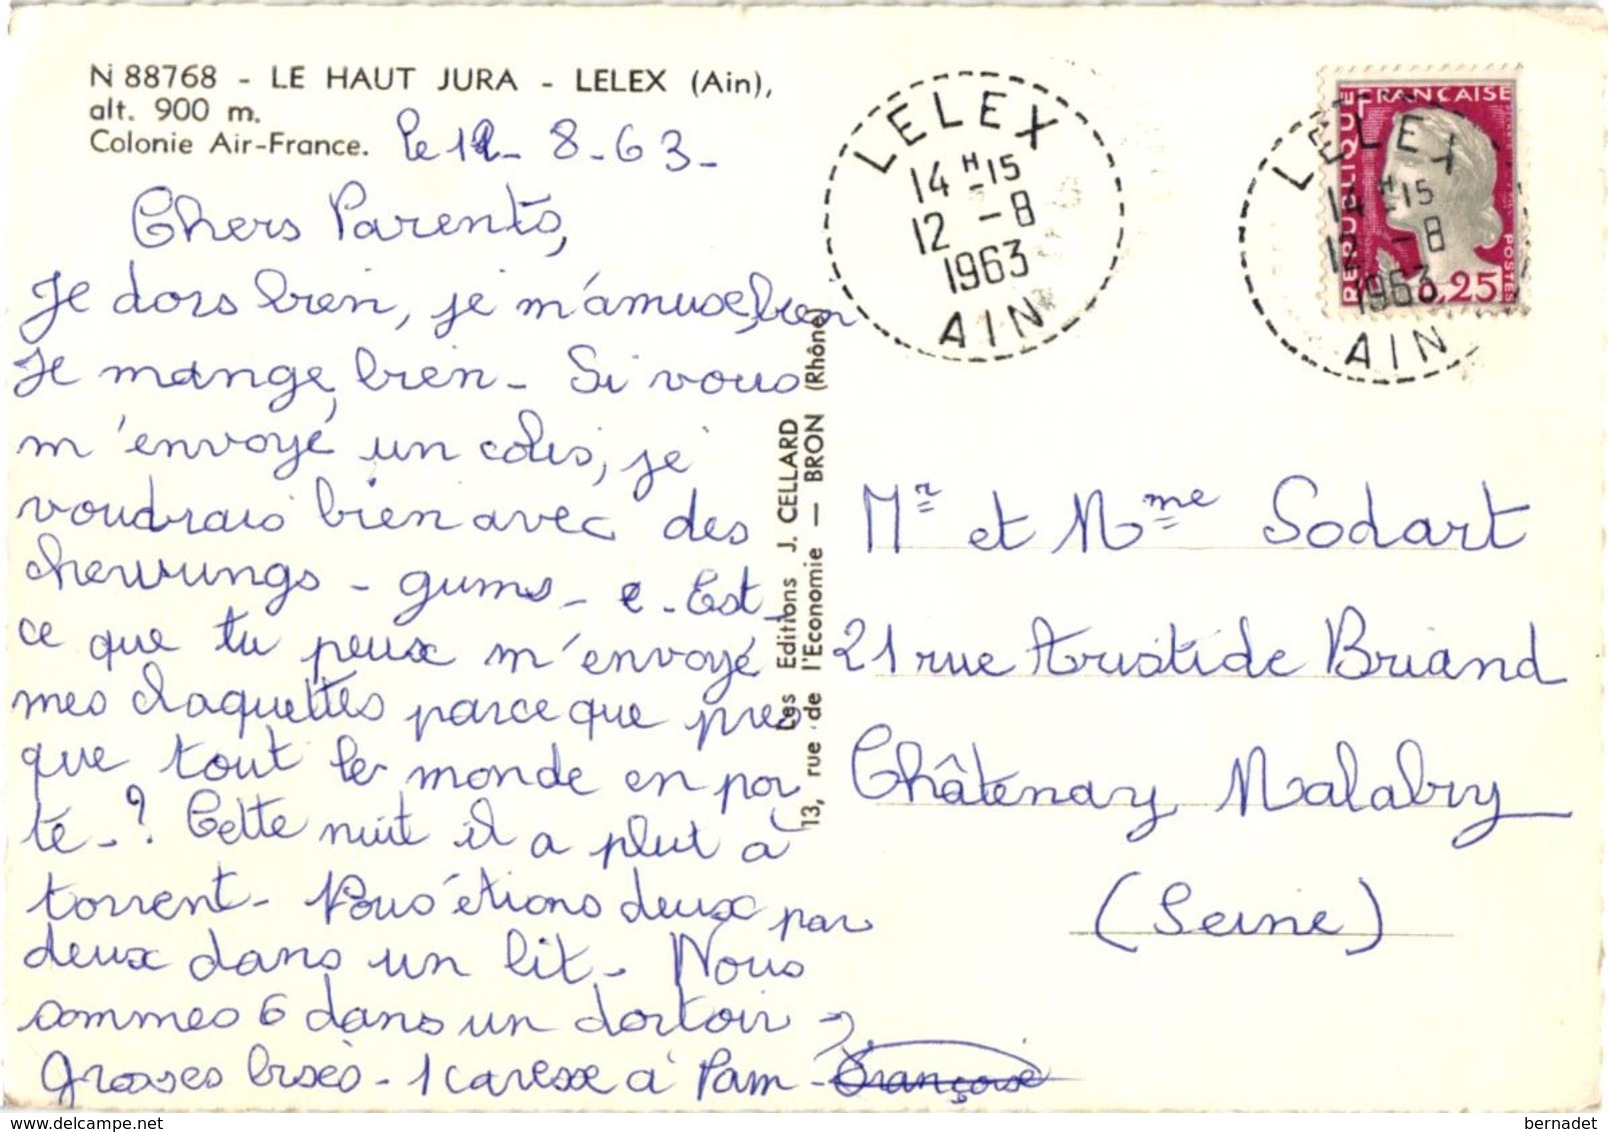 N 88768 - LE HAUT JURA - LELEX (Ain),
alt. 900 m.
Colonie Air-France.
le 12 - 8 - 63 -
Chers Parents,
Je dors bien, je m'amuse bien
Je mange bien - Si vous
m'envoyé un colis, je
voudrais bien avec des
chewungs - gums - e - Est
ce que tu peux m'envoyé
mes claquettes parce que pres
que tout le monde en por
te - ? Cette nuit il a plut à
torrent - Nous étions deux par
deux dans un lit - Nous
sommes 6 dans un dortoir -
Grosses bises - 1 caresse à Pam - Françoise
Les Editions J. CELLARD
13, rue de l'Economie — BRON (Rhône)
LELEX
14 H 15
12 - 8
1963
AIN
REPUBLIQUE FRANÇAISE
POSTES
0,25
LELEX
14 H 15
12 - 8
1963
AIN
Mr et Mme Sodart
21 rue Aristide Briand
Châtenay Malabry
(Seine)
bernadet